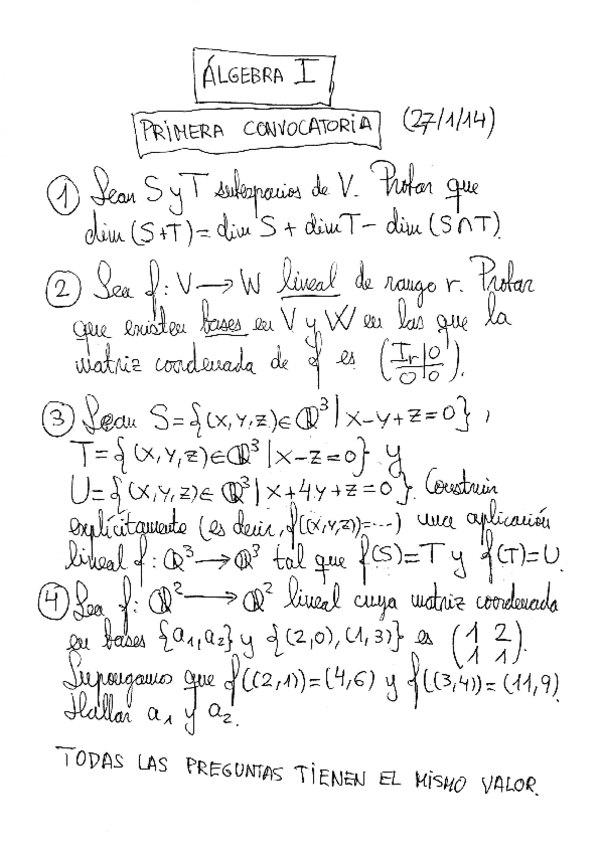 ÁLGEBRA I
PRIMERA CONVOCATORIA (27/1/14)
① Sean S y T subespacios de V. Probar que
dim (S+T) = dim S + dim T - dim (S∩T).
② Sea f: V → W lineal de rango r. Probar
que existen bases en V y W en las que la
matriz coordenada de f es (Ir|0 / 0|0).
③ Sean S={(x,y,z)∈ℚ³|x-y+z=0},
T={(x,y,z)∈ℚ³|x-z=0} y
U={(x,y,z)∈ℚ³|x+4y+z=0}. Construir
explícitamente (es decir, f((x,y,z))=---) una aplicación
lineal f: ℚ³ → ℚ³ tal que f(S)=T y f(T)=U.
④ Sea f: ℚ² → ℚ² lineal cuya matriz coordenada
en bases {a₁,a₂} y {(2,0),(1,3)} es (1 2 / 1 1).
Supongamos que f((2,1))=(4,6) y f((3,4))=(11,9).
Hallar a₁ y a₂.
TODAS LAS PREGUNTAS TIENEN EL MISMO VALOR.